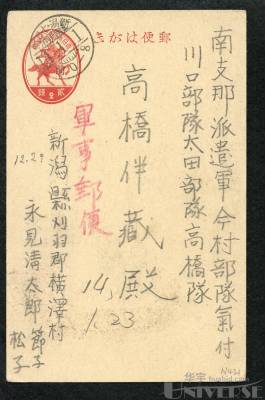 郵便はがき
南支那派遣軍今村部隊氣付
川口部隊太田部隊高橋隊
高橋伴藏殿
軍事郵便
14,
1.23
新潟縣刈羽郡横澤村
永見清太郎
節子
松子
12.29
華宇
N421
UNIVERSE